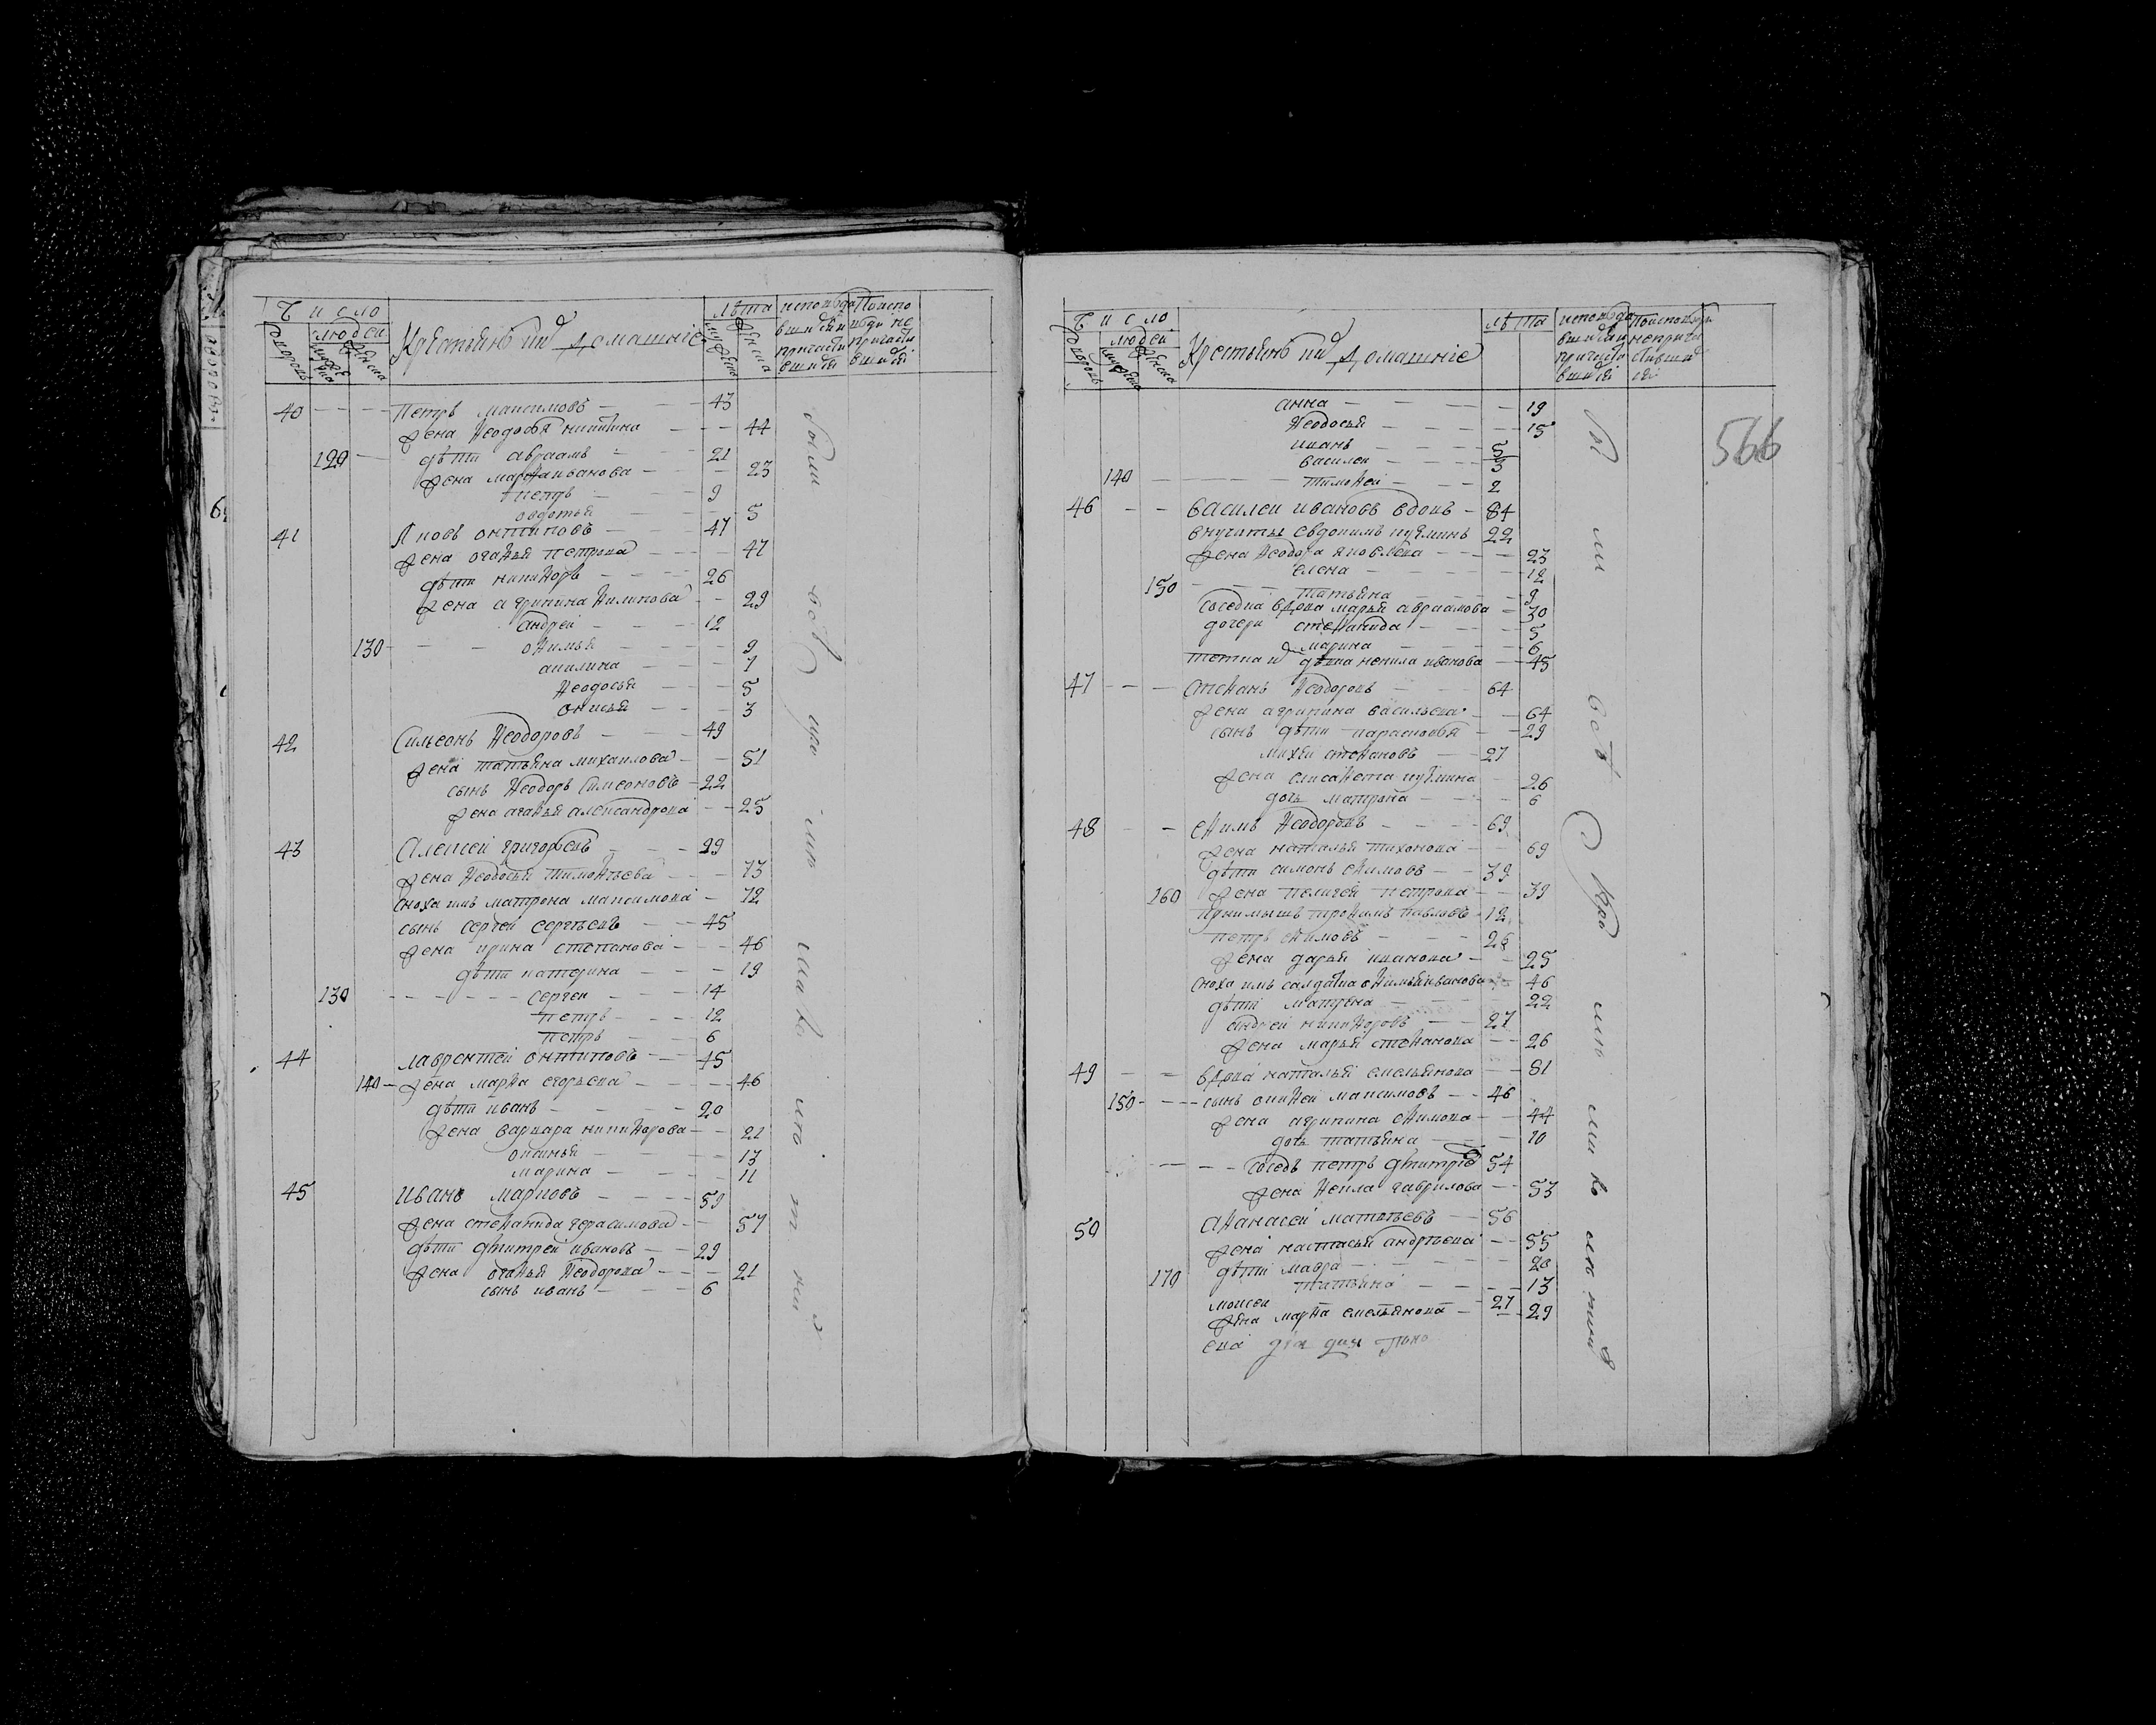 Число
людей
Крестьянъ ихъ домашніе
Лѣта
40 Петръ Максимовъ 43
жена Ѳеодосья Никитина 44
120 дѣти Авраамъ 21
жена Марѳа Иванова 23
Петръ 9
овдотья 5
41 Яковъ онтиповъ 47
жена огаѳья Петрова 47
дѣти никиѳоръ 26
жена агрипина Ѳилипова 29
андрей 12
130 оѳимья 9
акилина 7
Ѳеодосья 5
онисья 3
42 Симеонъ Ѳеодоровъ 49
жена татьяна михаилова 51
сынъ Ѳеодоръ Симеоновъ 22
жена агаѳья александрова 25
43 Алексей григорьевъ 29
жена Ѳеодосья тимоѳеева 73
сноха имъ матрона максимова 72
сынъ сергей сергѣевъ 45
жена ирина степанова 46
дѣти катерина 19
130 сергеи 14
петръ 12
петръ 6
44 лаврентей онтиповъ 45
140 жена марѳа егорьева 46
дѣти иванъ 20
жена варвара никиѳорова 21
оксинья 13
марина 11
45 Иванъ марковъ 59
жена стеѳанида герасимова 57
дѣти дмитреи ивановъ 29
жена огаѳья Ѳеодорова 21
сынъ иванъ 6
Число
людей
Крестьянъ ихъ домашніе
лѣта
566
анна 19
Ѳеодосья 15
иванъ 5
василеи 3
140 тимоѳеи 2
46 василеи ивановъ вдовъ 84
внучаты евдокимъ кузминъ 22
жена Ѳеодора яковлева 23
елена 12
150 татьяна 9
соседка вдова марья авраамова 30
дочери стеѳанида 5
марина 6
тетка ихъ девка ненила иванова 45
47 стеѳанъ Ѳеодоровъ 64
жена агрипина васильева 64
сынъ дѣти парасковья 29
михеи стеѳановъ 27
жена елисаѳета кузмина 26
дочь матрона 6
48 еѳимъ Ѳеодоровъ 69
жена наталья тихонова 69
дѣти симонъ еѳимовъ 39
160 жена пелагея петрова 39
приимышъ троѳимъ павловъ 12
петръ еѳимовъ 26
жена дарья иванова 25
сноха имъ салдатка еѳимья иванова 46
дѣти матрона 22
андреи никиѳоровъ 27
жена марья стеѳанова 26
49 вдова наталья емельянова 81
150 сынъ окиѳеи максимовъ 46
жена агрипина еѳимова 44
дочь татьяна 10
соседъ петръ дмитріевъ 54
жена Ѳекла гаврилова 53
50 аѳанасеи матѳѣевъ 56
жена настасья андрѣева 55
дѣти мавра 20
170 татьяна 13
моисеи 27
жена марѳа емельянова 29